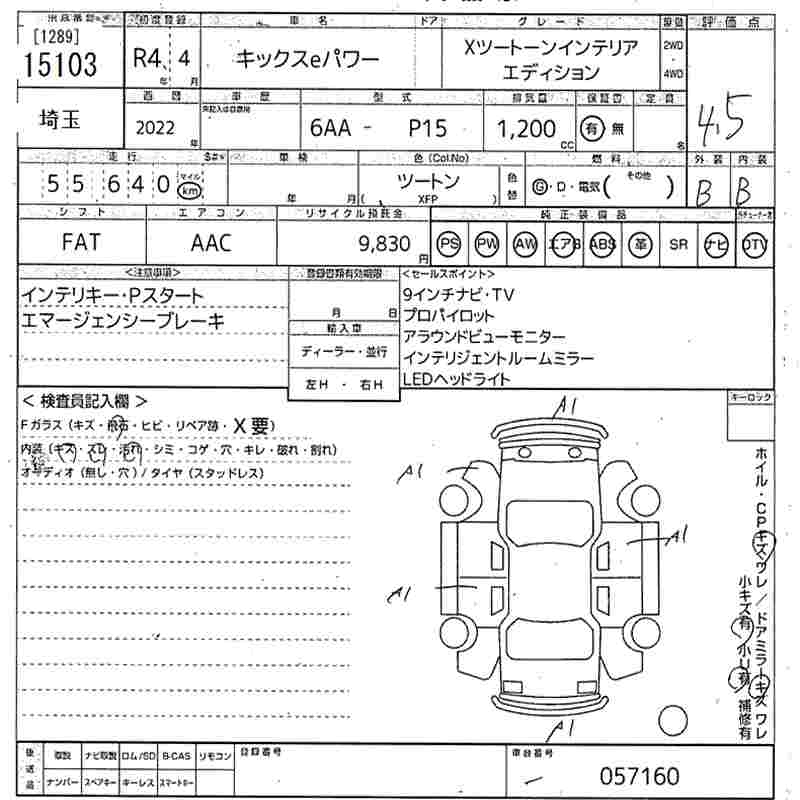 初度登録 車名 ドア グレード 評価点
[1289]
15103 R4. 4 キックスeパワー Xツートーンインテリア 2WD
年 月 エディション 4WD
西暦 車歴 型式 排気量 保証書 定員
埼玉 2022 6AA - P15 1,200 有 無 4.5
年 CC 名
走行 車検 色(Col.No) 燃料 外装 内装
55640 マイル km 年 月 ( ツートン XFP ) 色替 G・D・電気( その他 ) B B
シフト エアコン リサイクル預託金 純正装備品
FAT AAC 9,830 円 PS PW AW エアB ABS 革 SR ナビ TV
<注意事項> 登録書類有効期限 <セールスポイント>
インテリキー・Pスタート 9インチナビ・TV
エマージェンシーブレーキ 月 日 プロパイロット
輸入車 アラウンドビューモニター
ディーラー・並行 インテリジェントルームミラー
左H ・ 右H LEDヘッドライト
<検査員記入欄> キーロック
Fガラス(キズ・飛石・ヒビ・リペア跡・X要)
内装(キズ・スレ・汚れ・シミ・コゲ・穴・キレ・破れ・割れ)
オーディオ(無し・穴)/タイヤ(スタッドレス)
A1
A1
A1
A1
A1
ホイル・CPキズワレ/ドアミラーキズワレ
小キズ有 小U有 補修有
後送品 取説 ナビ取説 ロム/SD B-CAS リモコン 登録番号 車台番号
ナンバー スペアキー キーレス スマートキー 057160